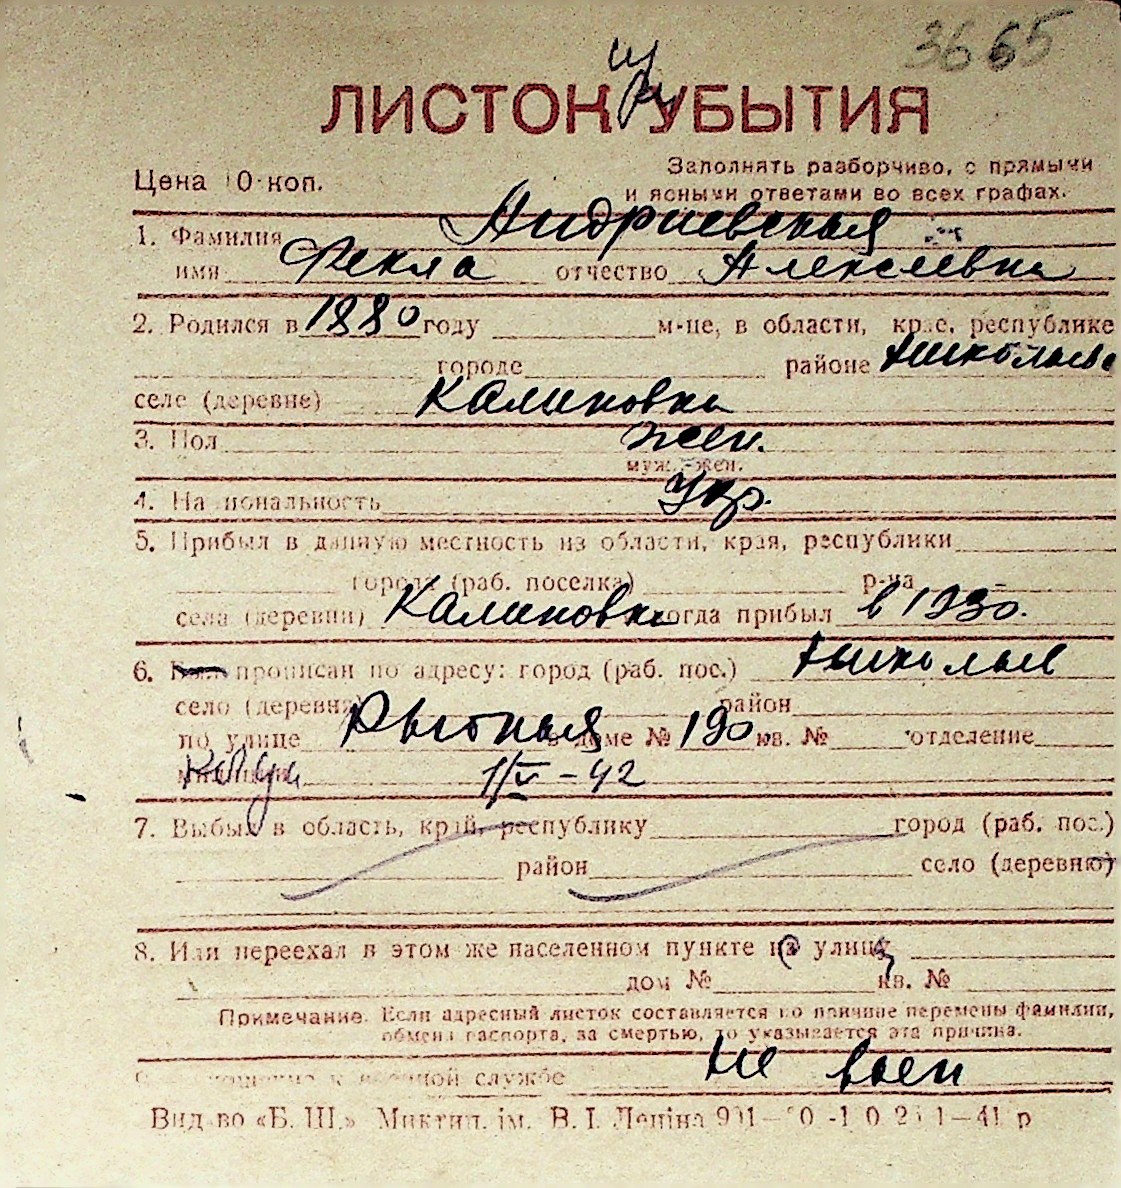 3665
ЛИСТОК УБЫТИЯ
Цена 10 коп.
Заполнять разборчиво, с прямыми
и ясными ответами во всех графах.
1. Фамилия Андриевская
имя Фекла отчество Алексеевна
2. Родился в 1880 году м-це, в области, крае, республике
городе районе Николаев
селе (деревне) Калиновка
3. Пол жен.
муж. - жен.
4. Национальность Укр.
5. Прибыл в данную местность из области, края, республики
города (раб. поселка) р-на
села (деревни) Калиновка когда прибыл в 1930.
6. прописан по адресу: город (раб. пос.) Николаев
село (деревня) район
по улице Рыбная в доме № 190 кв. № отделение
милиции 1/V-42
7. Выбыл в область, край, республику город (раб. пос.)
район село (деревню)
8. Или переехал в этом же населенном пункте на улицу
дом № кв. №
Примечание. Если адресный листок составляется по причине перемены фамилии,
обмена паспорта, за смертью, то указывается эта причина.
военной службе Не воен
Вид-во «Б. Ш.» Миктип. ім. В. І. Леніна